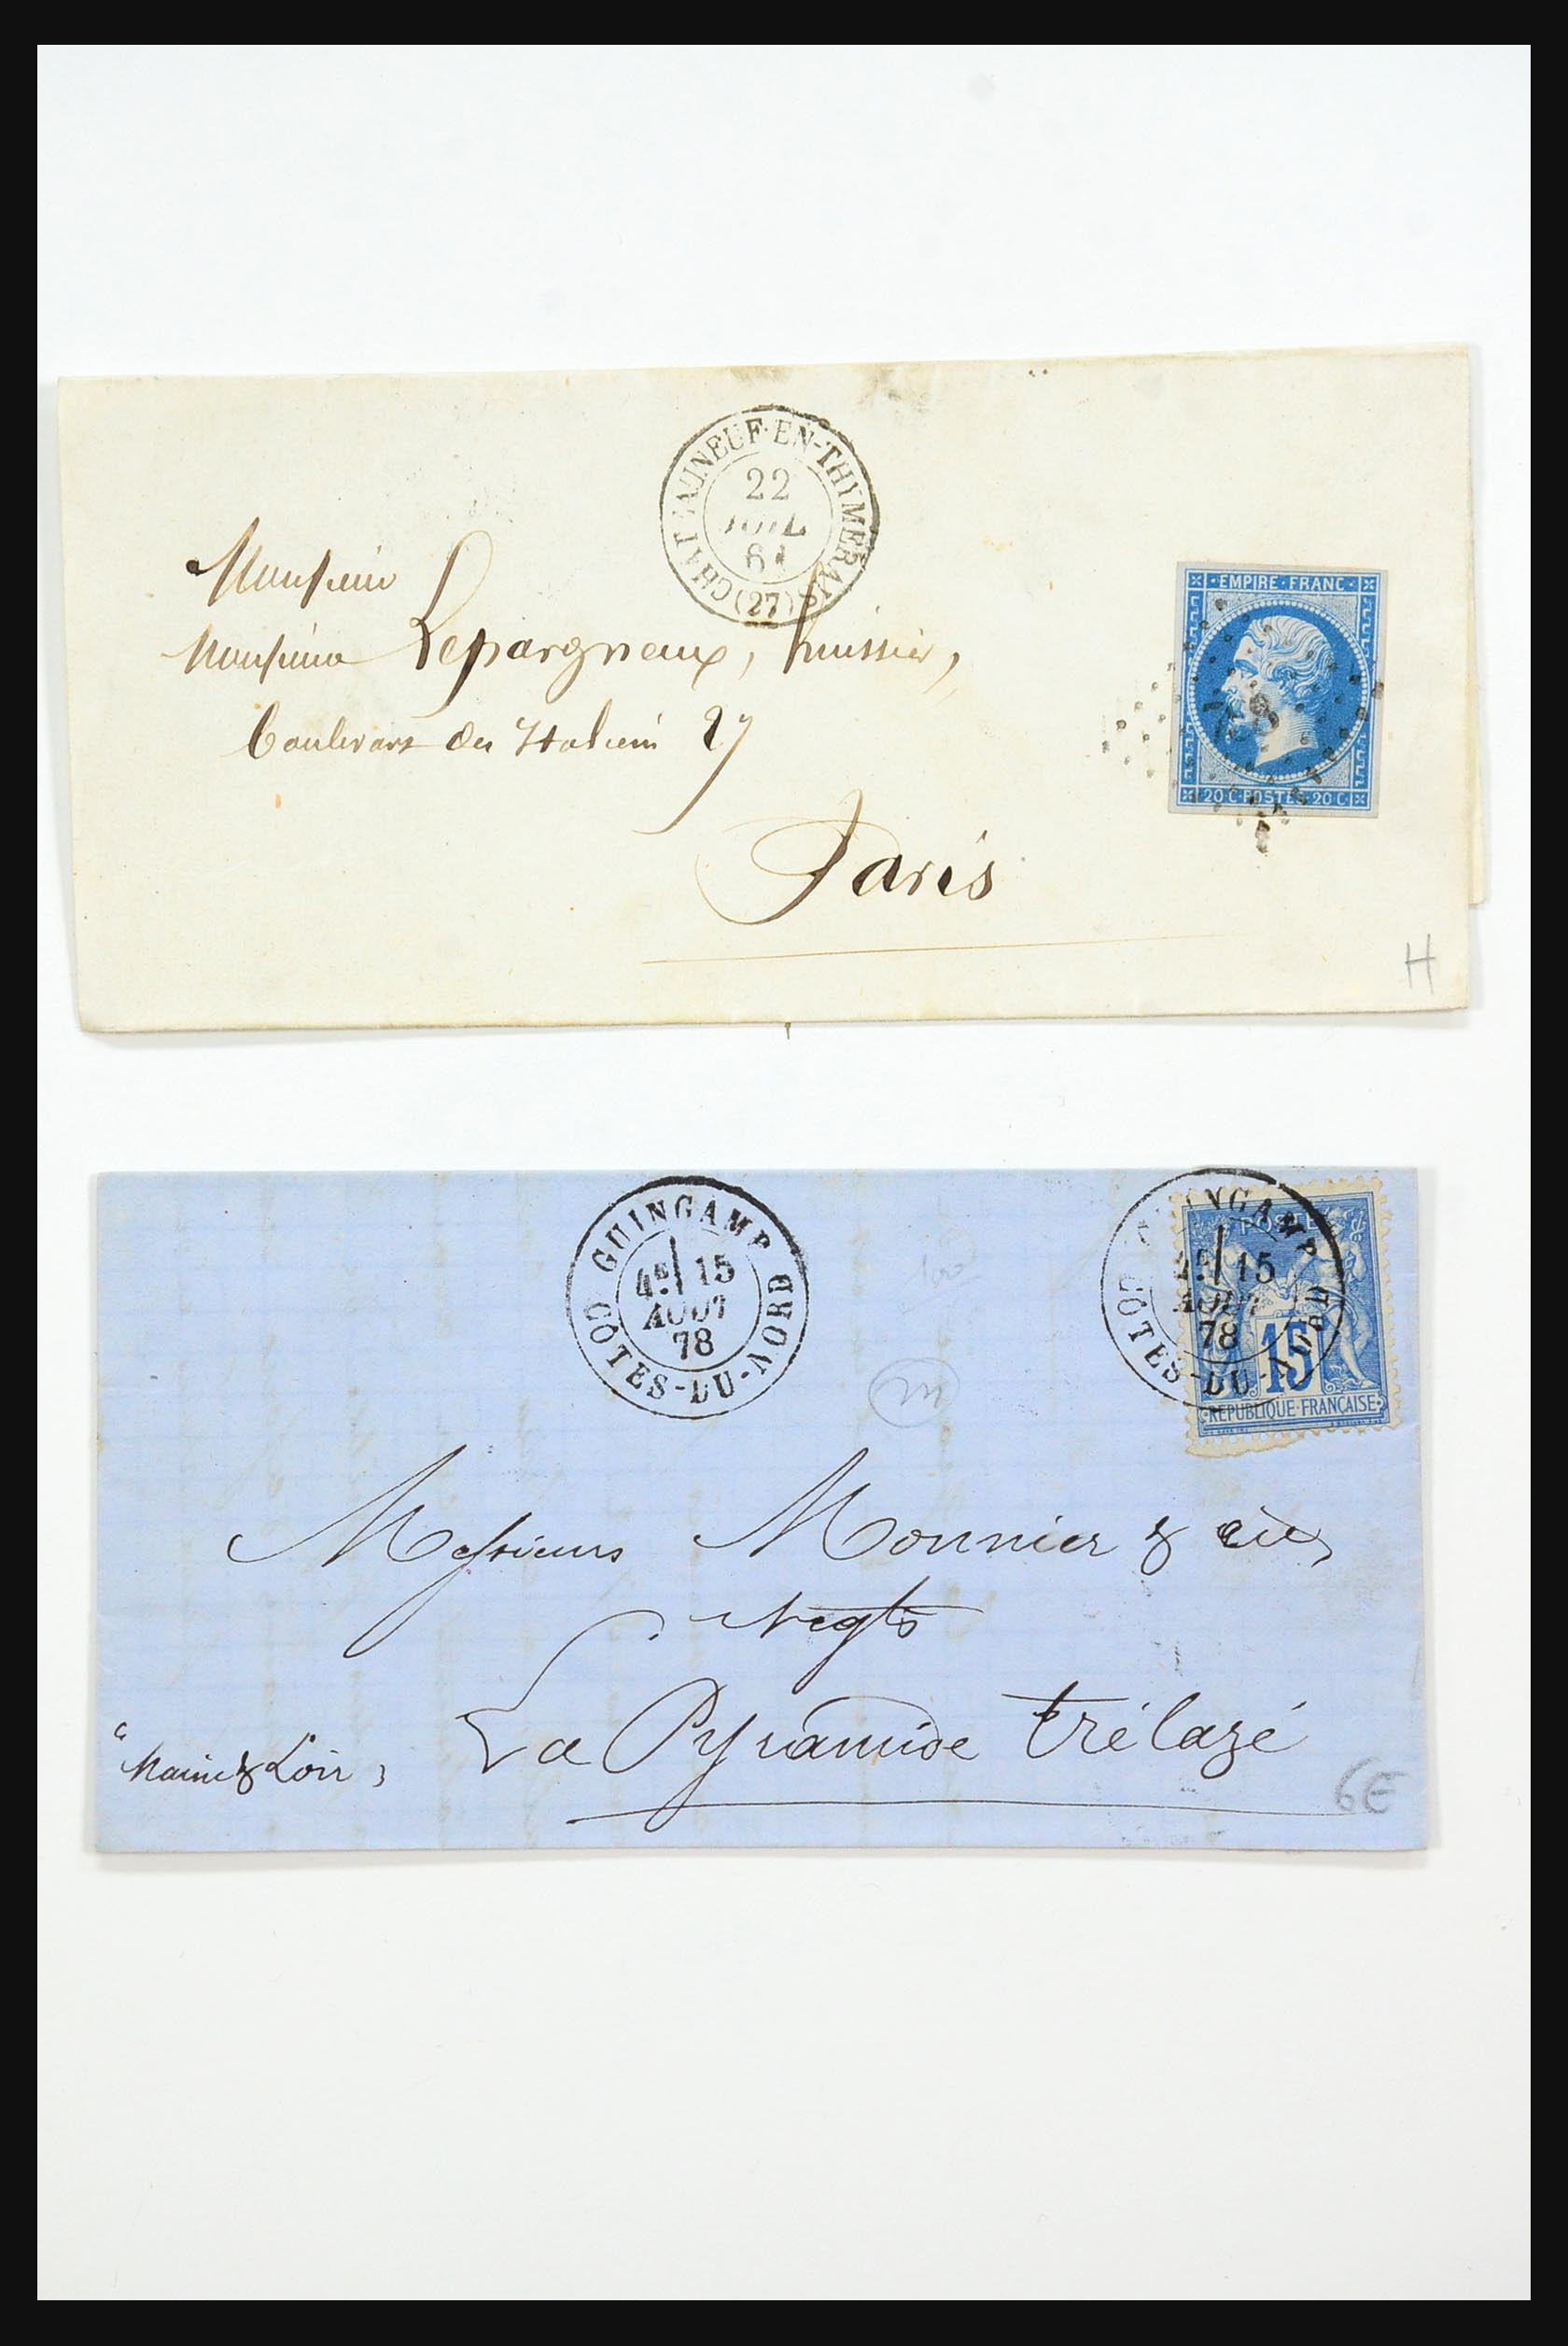 CHATEAUNEUF-EN-THYMERAIS
22
JUIL
61
(27)
Monsieur
Monsieur Lepargneux, huissier,
boulevart des Italiens 27
Paris
EMPIRE·FRANC·
20 C·POSTES·20 C
H
GUINGAMP
4E 15
AOUT
78
COTES-DU-NORD
GUINGAMP
4E 15
AOUT
78
COTES-DU-NORD
POSTES
15
REPUBLIQUE·FRANÇAISE
100
m
Messieurs Monnier & cie,
Negts
La Pyramide trélazé
"Maine & Loir,
6€